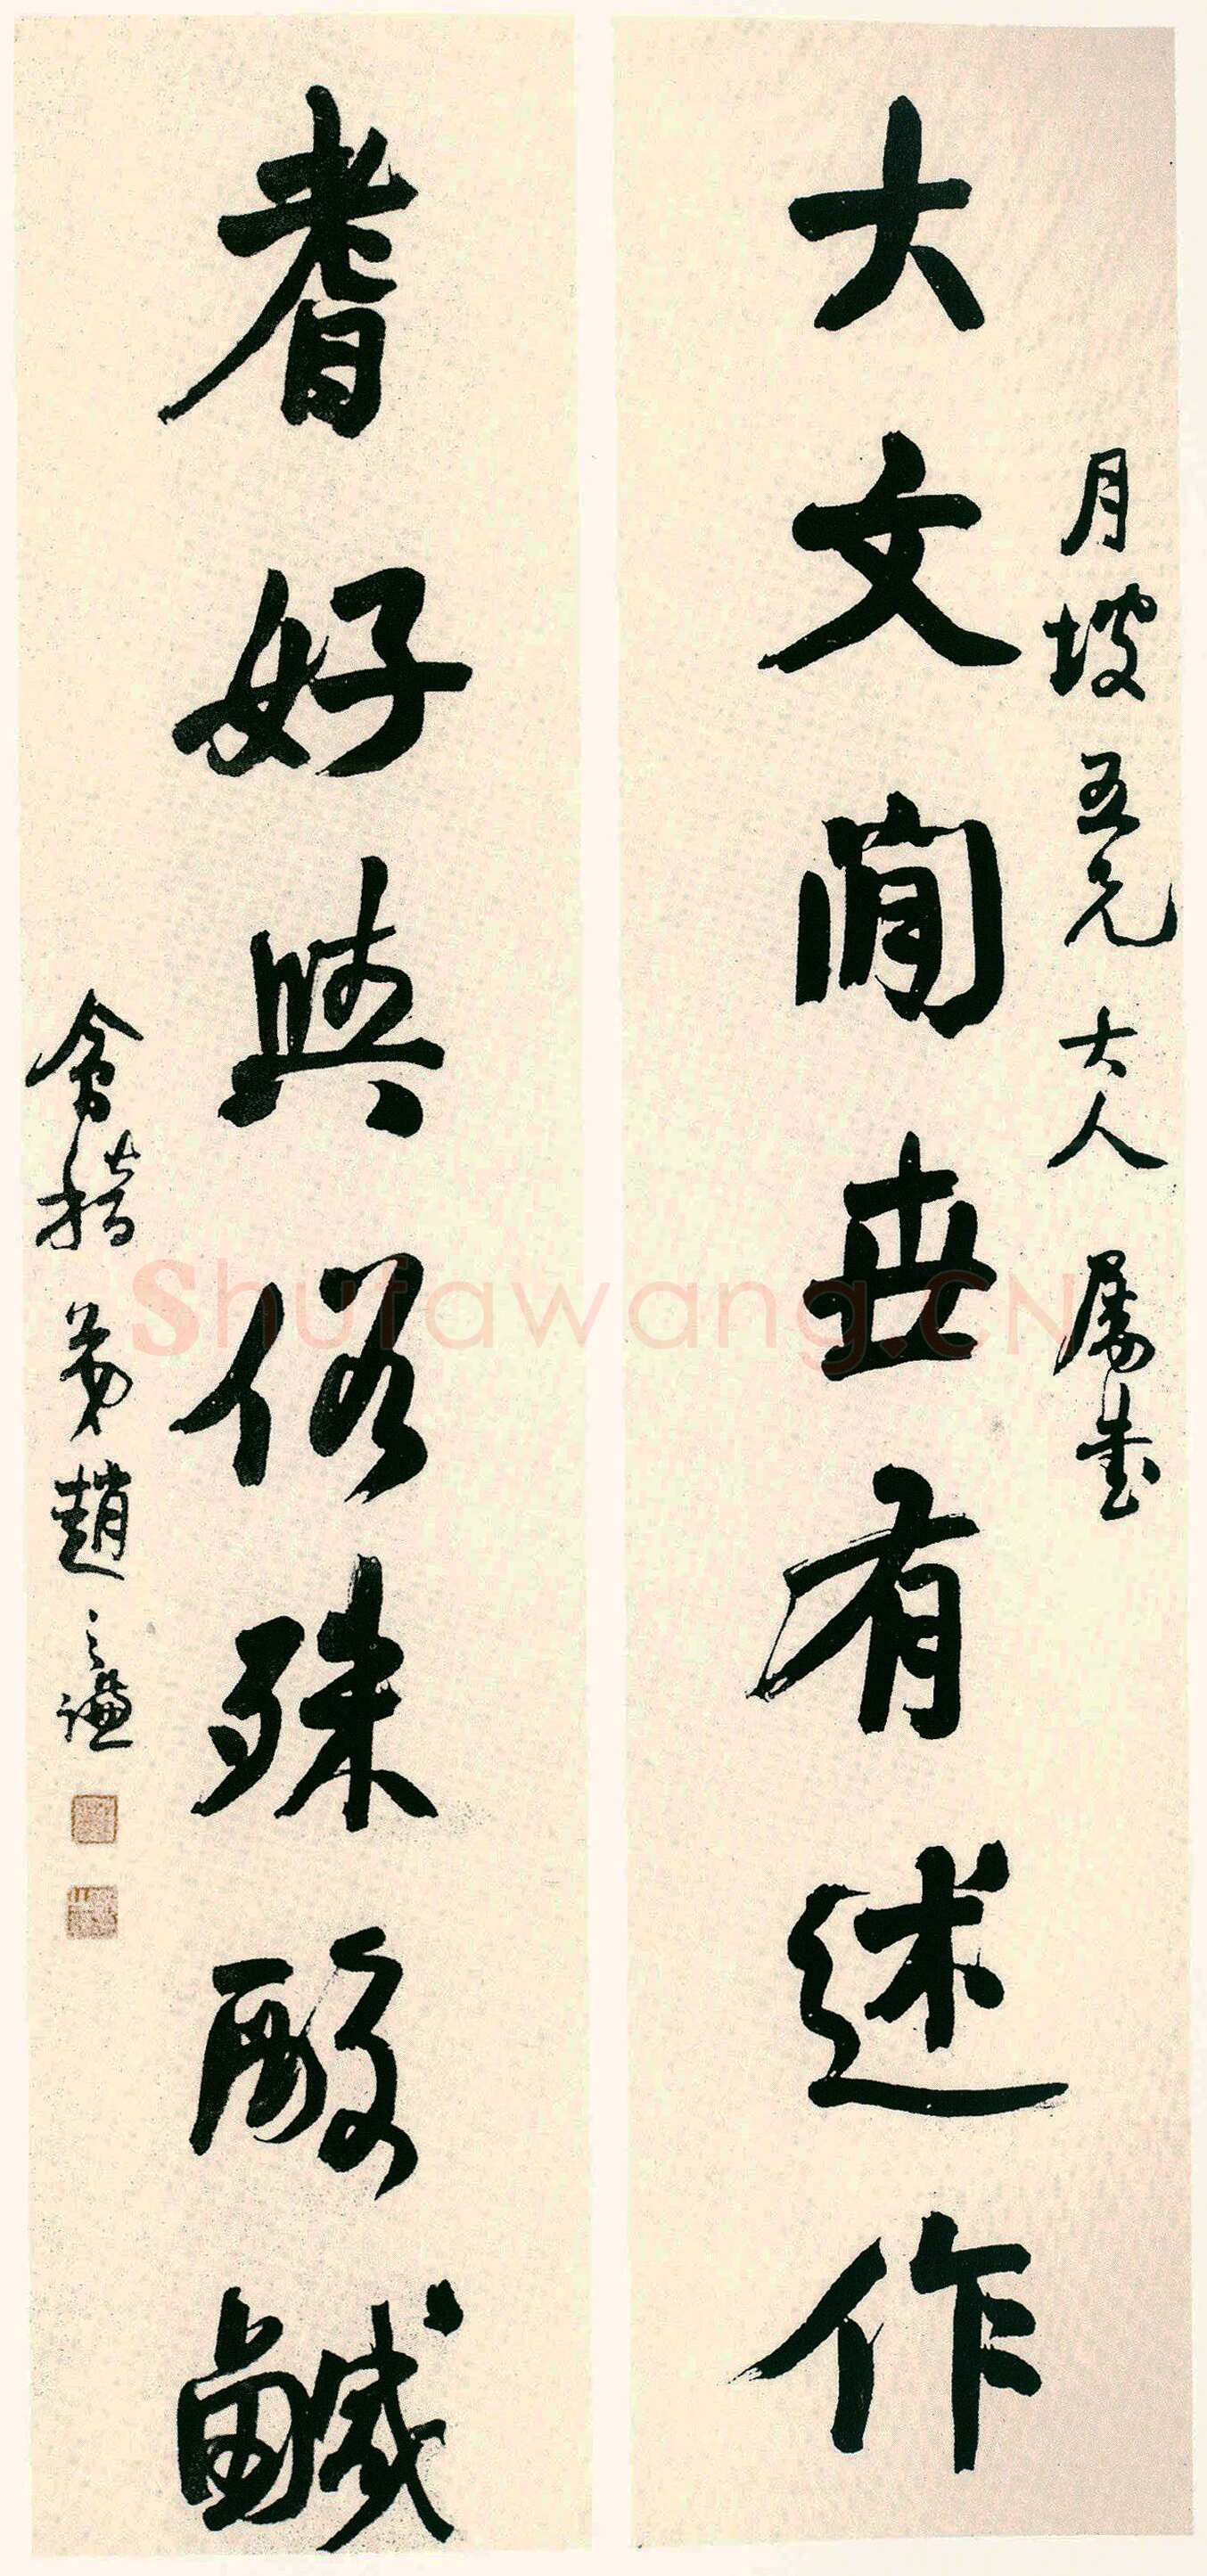 月坡五兄大人属书
大文閒世有述作
耆好與俗殊酸鹹
會稽弟趙之謙
Shufawang.CN